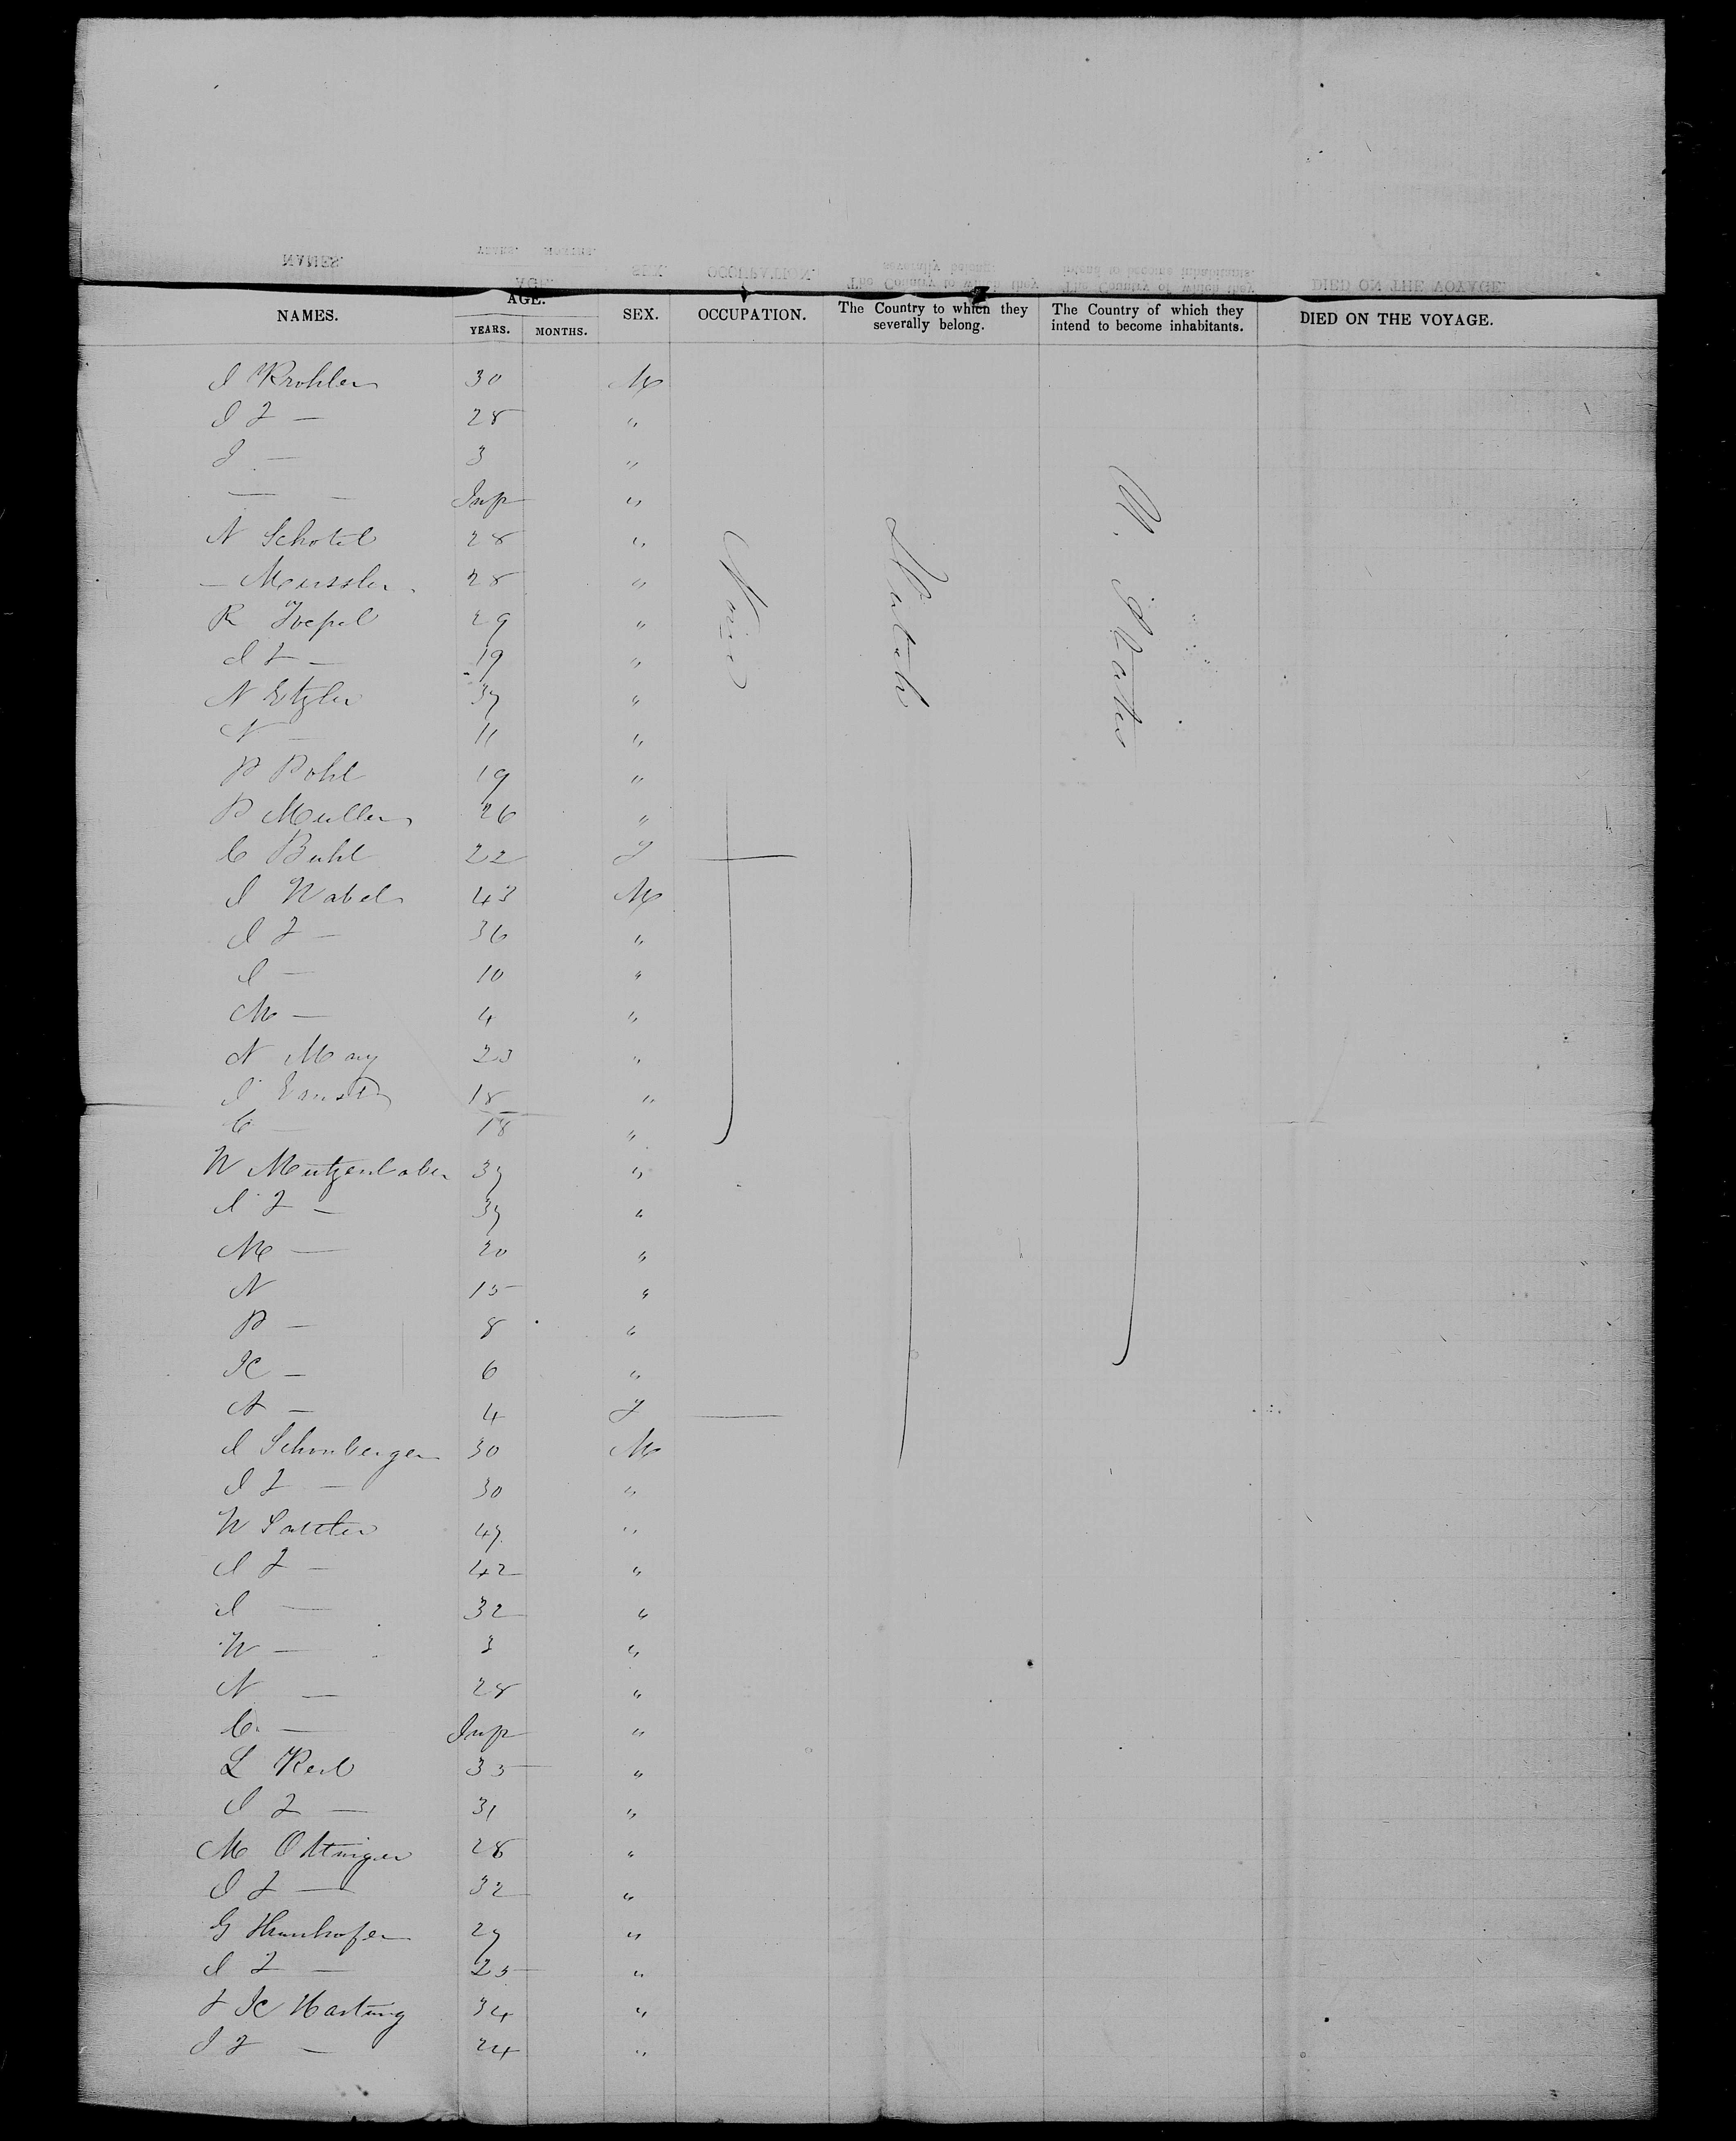 NAMES. AGE. SEX. OCCUPATION. The Country to which they severally belong. The Country of which they intend to become inhabitants. DIED ON THE VOYAGE.
YEARS. MONTHS.
I Krohler 30 M
I F — 28 "
I — 3 "
— — Inf "
N Schotel 28 "
— Meissler 28 "
R 29 "
I F — 19 "
N Etzler 37 "
N — 11 "
P Pohl 19 "
P Muller 26 "
C Buhl 22 F
I Nabel 43 M
I F — 36 "
I — 10 "
M — 4 "
N May 23 "
I 18 "
C — 18 "
W 37 "
I F — 37 "
M — 20 "
N 15 "
P — 8 "
K — 6 "
A — 4 F
I Schonberger 30 M
I F — 30 "
W Sattler 47 "
I F — 42 "
I — 32 "
W — 3 "
N — 28 "
C. — Inf "
L Keil 35 "
I F — 31 "
M Ottinger 28 "
I F — 32 "
G 27 "
I F — 25 "
F K Hartung 34 "
I F — 24 "
None
U. States